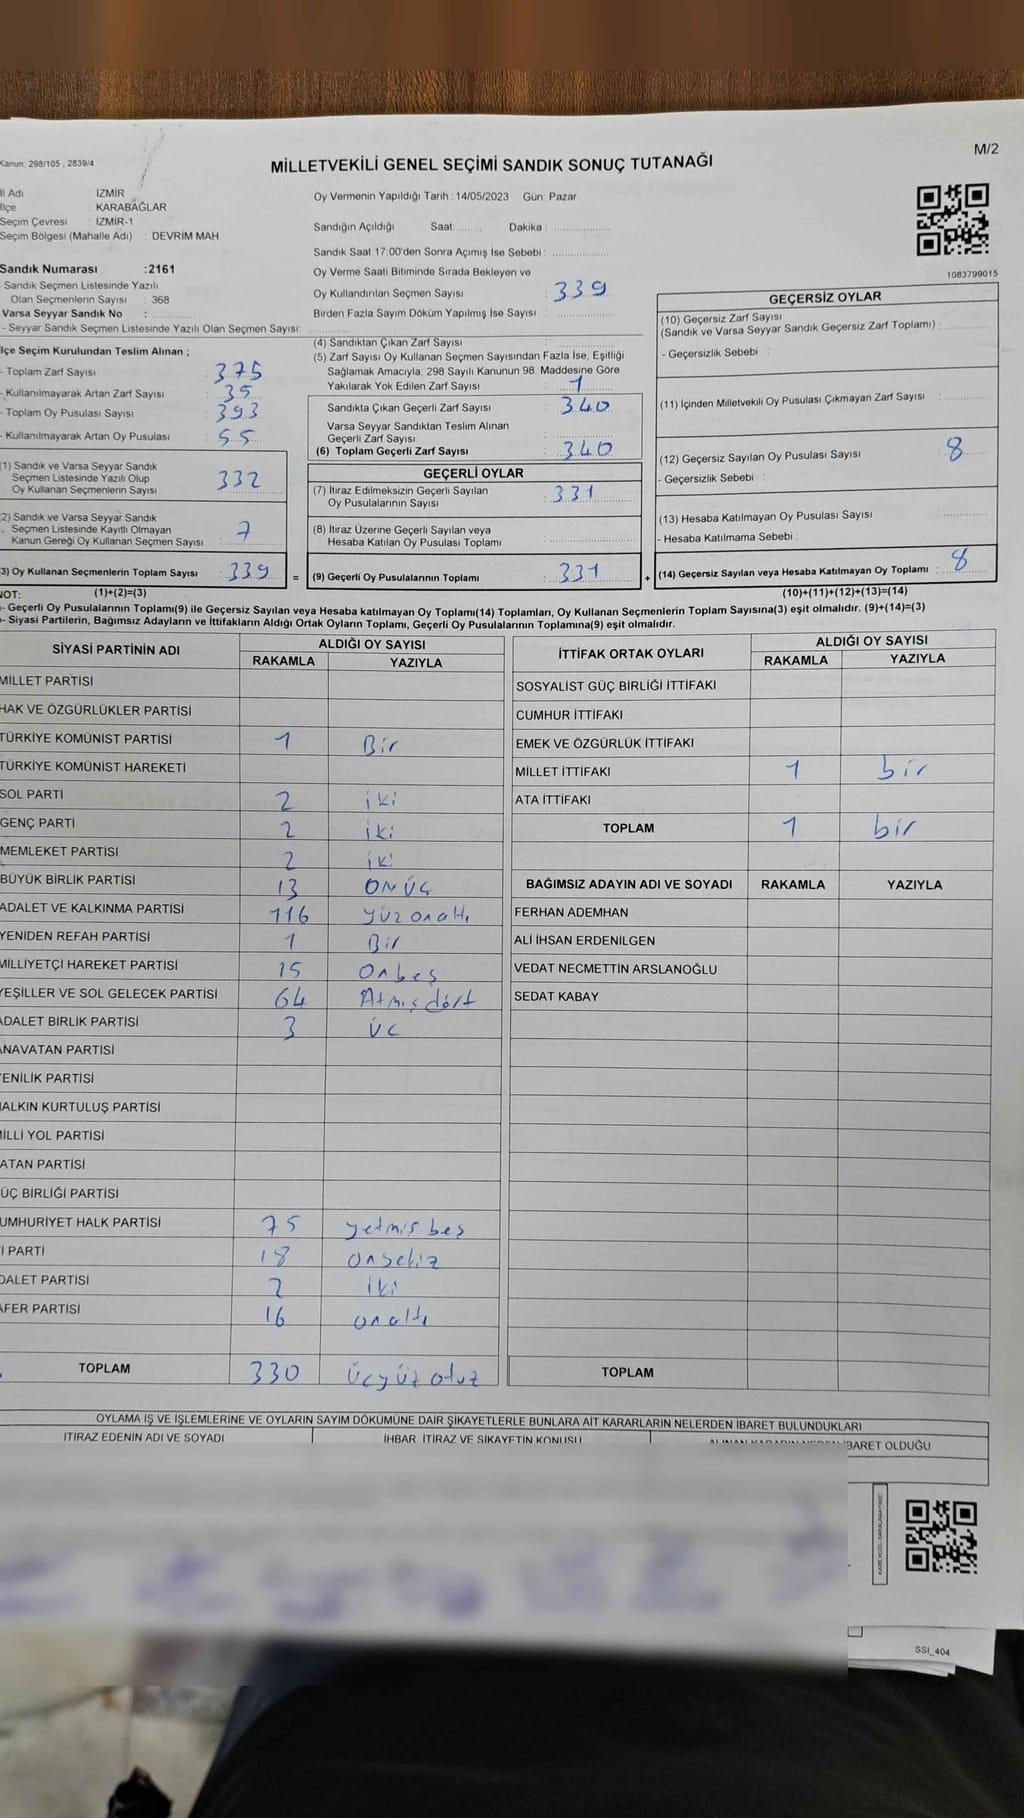 M/2
Kanun: 298/105 , 2839/4
MİLLETVEKİLİ GENEL SEÇİMİ SANDIK SONUÇ TUTANAĞI
İl Adı : İZMİR
İlçe : KARABAĞLAR
Seçim Çevresi : İZMİR-1
Seçim Bölgesi (Mahalle Adı) : DEVRİM MAH.
Sandık Numarası :2161
- Sandık Seçmen Listesinde Yazılı
Olan Seçmenlerin Sayısı : 368
Varsa Seyyar Sandık No :
- Seyyar Sandık Seçmen Listesinde Yazılı Olan Seçmen Sayısı:
İlçe Seçim Kurulundan Teslim Alınan ;
- Toplam Zarf Sayısı : 375
- Kullanılmayarak Artan Zarf Sayısı : 35
- Toplam Oy Pusulası Sayısı : 393
- Kullanılmayarak Artan Oy Pusulası : 55
(1) Sandık ve Varsa Seyyar Sandık
Seçmen Listesinde Yazılı Olup
Oy Kullanan Seçmenlerin Sayısı : 332
(2) Sandık ve Varsa Seyyar Sandık
Seçmen Listesinde Kayıtlı Olmayan
Kanun Gereği Oy Kullanan Seçmen Sayısı : 7
(3) Oy Kullanan Seçmenlerin Toplam Sayısı : 339
Oy Vermenin Yapıldığı Tarih :14/05/2023 Gün: Pazar
Sandığın Açıldığı Saat: Dakika :
Sandık Saat 17:00'den Sonra Açımış İse Sebebi :
Oy Verme Saati Bitiminde Sırada Bekleyen ve
Oy Kullandırılan Seçmen Sayısı : 339
Birden Fazla Sayım Döküm Yapılmış İse Sayısı :
(4) Sandıktan Çıkan Zarf Sayısı :
(5) Zarf Sayısı Oy Kullanan Seçmen Sayısından Fazla İse, Eşitliği
Sağlamak Amacıyla; 298 Sayılı Kanunun 98. Maddesine Göre
Yakılarak Yok Edilen Zarf Sayısı : 1
Sandıkta Çıkan Geçerli Zarf Sayısı : 340
Varsa Seyyar Sandıktan Teslim Alınan
Geçerli Zarf Sayısı :
(6) Toplam Geçerli Zarf Sayısı : 340
GEÇERLİ OYLAR
(7) İtiraz Edilmeksizin Geçerli Sayılan
Oy Pusulalarının Sayısı : 331
(8) İtiraz Üzerine Geçerli Sayılan veya
Hesaba Katılan Oy Pusulası Toplamı :
= (9) Geçerli Oy Pusulalarının Toplamı : 331
1083799015
GEÇERSİZ OYLAR
(10) Geçersiz Zarf Sayısı
(Sandık ve Varsa Seyyar Sandık Geçersiz Zarf Toplamı) :
- Geçersizlik Sebebi :
(11) İçinden Milletvekili Oy Pusulası Çıkmayan Zarf Sayısı :
(12) Geçersiz Sayılan Oy Pusulası Sayısı : 8
- Geçersizlik Sebebi :
(13) Hesaba Katılmayan Oy Pusulası Sayısı :
- Hesaba Katılmama Sebebi :
+ (14) Geçersiz Sayılan veya Hesaba Katılmayan Oy Toplamı : 8
NOT: (1)+(2)=(3) (10)+(11)+(12)+(13)=(14)
- Geçerli Oy Pusulalarının Toplamı(9) ile Geçersiz Sayılan veya Hesaba katılmayan Oy Toplamı(14) Toplamları, Oy Kullanan Seçmenlerin Toplam Sayısına(3) eşit olmalıdır. (9)+(14)=(3)
- Siyasi Partilerin, Bağımsız Adayların ve İttifakların Aldığı Ortak Oyların Toplamı, Geçerli Oy Pusulalarının Toplamına(9) eşit olmalıdır.
SİYASİ PARTİNİN ADI ALDIĞI OY SAYISI
RAKAMLA YAZIYLA
MİLLET PARTİSİ
HAK VE ÖZGÜRLÜKLER PARTİSİ
TÜRKİYE KOMÜNİST PARTİSİ 1 Bir
TÜRKİYE KOMÜNİST HAREKETİ
SOL PARTİ 2 iki
GENÇ PARTİ 2 iki
MEMLEKET PARTİSİ 2 iki
BÜYÜK BİRLİK PARTİSİ 13 ONÜÇ
ADALET VE KALKINMA PARTİSİ 116 yüzonaltı
YENİDEN REFAH PARTİSİ 1 Bir
MİLLİYETÇİ HAREKET PARTİSİ 15 Onbeş
YEŞİLLER VE SOL GELECEK PARTİSİ 64 Atmış dört
ADALET BİRLİK PARTİSİ 3 üç
ANAVATAN PARTİSİ
YENİLİK PARTİSİ
HALKIN KURTULUŞ PARTİSİ
MİLLİ YOL PARTİSİ
VATAN PARTİSİ
GÜÇ BİRLİĞİ PARTİSİ
CUMHURİYET HALK PARTİSİ 75 yetmiş beş
İ PARTİ 18 onsekiz
ADALET PARTİSİ 2 iki
ZAFER PARTİSİ 16 onaltı
TOPLAM 330 Üçyüz otuz
İTTİFAK ORTAK OYLARI ALDIĞI OY SAYISI
RAKAMLA YAZIYLA
SOSYALİST GÜÇ BİRLİĞİ İTTİFAKI
CUMHUR İTTİFAKI
EMEK VE ÖZGÜRLÜK İTTİFAKI
MİLLET İTTİFAKI 1 bir
ATA İTTİFAKI
TOPLAM 1 bir
BAĞIMSIZ ADAYIN ADI VE SOYADI RAKAMLA YAZIYLA
FERHAN ADEMHAN
ALİ İHSAN ERDENİLGEN
VEDAT NECMETTİN ARSLANOĞLU
SEDAT KABAY
TOPLAM
OYLAMA İŞ VE İŞLEMLERİNE VE OYLARIN SAYIM DÖKÜMÜNE DAİR ŞİKAYETLERLE BUNLARA AİT KARARLARIN NELERDEN İBARET BULUNDUKLARI
İTİRAZ EDENİN ADI VE SOYADI İHBAR, İTİRAZ VE ŞİKAYETİN KONUSU ALINAN KARARIN NEDEN İBARET OLDUĞU
SSI_404